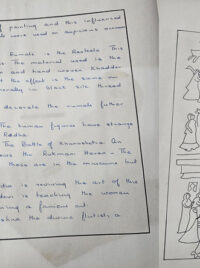 of painting and this influenced
were used on auspicious occasion
Rumals is the Rasleela This
The material used is the
and hand woven Khaddar
the effect is the same on
generally in black silk thread
decorate the rumals further
The human figures have strange
Radha
The Battle of Kurukshetra. An
the Rukmani Haran - The
these are in the museums but
is reviving the art of this
Devi is teaching the women
a famous art.
the divine flutist, a